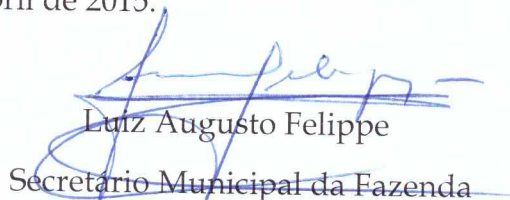 ril de 2015.
Luiz Augusto Felippe
Secretário Municipal da Fazenda